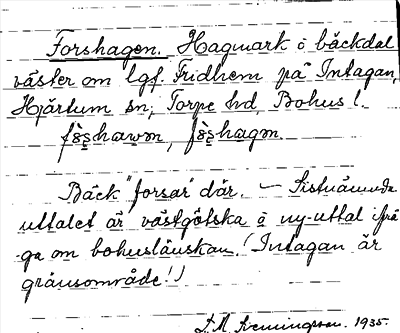 Forshagen. Hagmark i bäckdal
väster om lgf. Fridhem på Intagan,
Hjärtum sn, Torpe hd, Bohus l.
fö̀s̨hawən, fö̀s̨hagən.
Bäck "forsar" där. — Sistnämnda
uttalet är västgötska o ny-uttal ifrå-
ga om bohuslänskan. (Intagan är
gränsområde!)
1935.